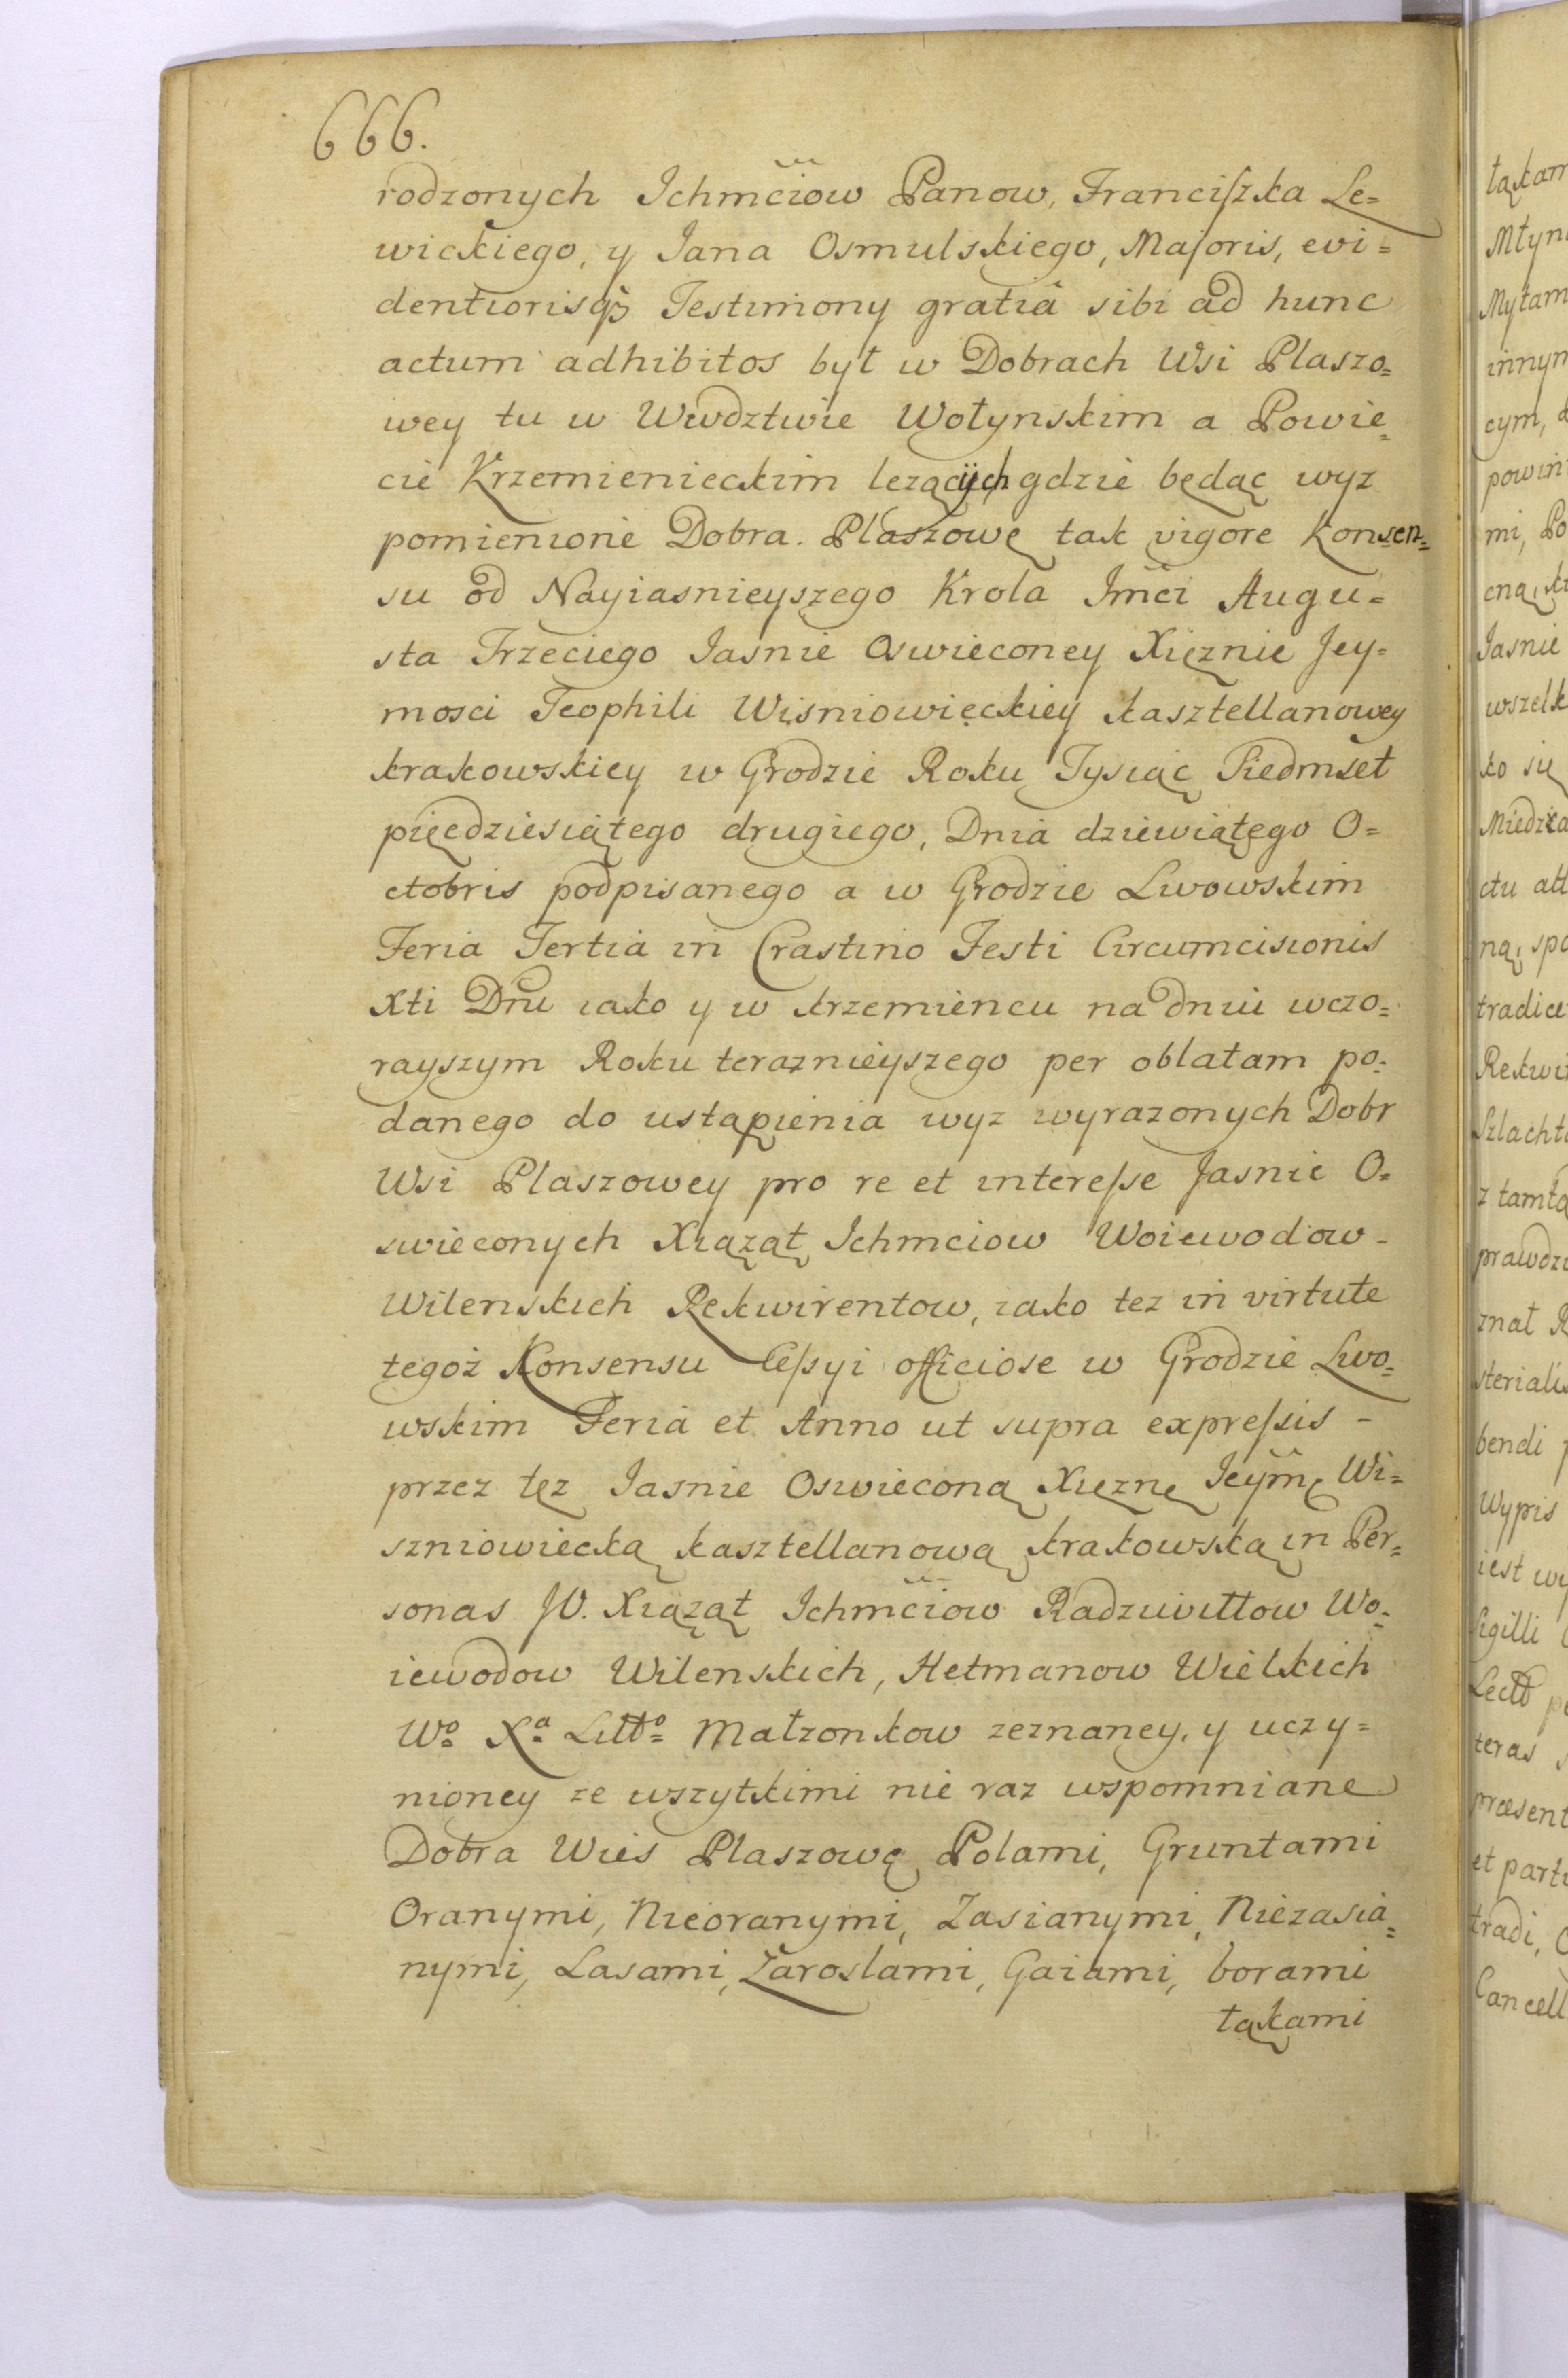 666.
rodzonych Ichmciow Panow, Franciszka Le=
wickiego, y Jana Osmulskiego, Majoris, evi=
dentiorisq3 Testimony gratiâ sibi ad hunc
actum adhibitos był w Dobrach Wsi Plaszo=
wey tu w Wwdztwie Wołynskim a Powie=
cie Krzemienieckim lezących gdzie będąc wyz
pomienione Dobra Plaszowę tak vigore Konsen=
su od Nayiasnieyszego Krola Jmci Augu=
sta Trzeciego Jasnie Oswieconey Xięznie Jey=
mosci Teophili Wisniowięckiey kasztellanowey
krakowskiey w Grodzie Roku Tysiąc Siedmset
pięcdziesiątego drugiego, Dnia dziewiątego O=
ctobris podpisanego a w Grodzie Lwowskim
Feria Tertia in Crastino Festi Circumcisionis
Xti Dni iako y w krzemiencu na dniu wczo=
rayszym Roku teraznieyszego per oblatam po=
danego do ustąpienia wyz wyrazonych Dobr
Wsi Plaszowey pro re et interesse Jasnie O=
swieconych Xiąząt Ichmciow Woiewodow -
Wilenskich Rekwirentow, iako tez in virtute
tegoż Konsensu Cessyi officiose w Grodzie Lwo=
wskim Feria et Anno ut supra expressis -
przez tęz Jasnie Oswieconą Xięznę Jeymę Wi=
szniowiecką kasztellanową krakowską in Per=
sonas JO. Xiąząt Ichmciow Radziwiłłow Wo=
iewodow Wilenskich, Hetmanow Wielkich
Wo Xa Litto Małzonkow zeznaney, y uczy=
nioney ze wszytkimi nie raz wspomniane
Dobra Wies Plaszowę Polami, Gruntami
Oranymi, Nieoranymi, Zasianymi, Niezasia=
nymi, Lasami, Zaroslami, Gaiami, borami
łąkami
łąkam
Młyn
Mytam
innym
cym,
powin
mi, Po
cną,
Jasnie
wszelk
ko się
Miedz
ctu
ną, spo
tradi
Rekwi
Szlacht
z tamt
prawdz
znał R
steriali
bendi
Wypis
iest wy
Sigilli
Lect
teras
præsent
et part
tradi,
Cancell